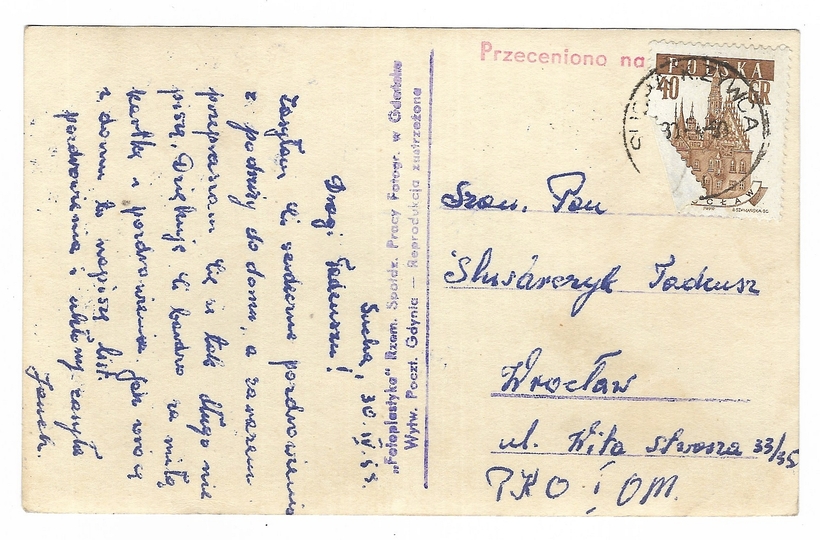 Sucha, 30.IV.59.
Drogi Tadeuszu!
Zasyłam Ci serdeczne pozdrowienia
z podróży do domu, a zarazem
przepraszam Cię że tak długo nie
piszę. Dziękuję Ci bardzo za miłą
kartkę i pozdrowienia. Jak wrócę
z domu to napiszę list.
pozdrowienia i ukłony zasyła
Janek.
„Fotoplastyka" Rzem. Spółdz. Pracy Fotogr. w Gdańsku
Wytw. Poczt. Gdynia — Reprodukcja zastrzeżona
Przeceniono na
POLSKA
40 GR
Szan. Pan
Slusarczyk Tadeusz
Wrocław
ul. Wita Stwosza 33/35
PKO i OM.